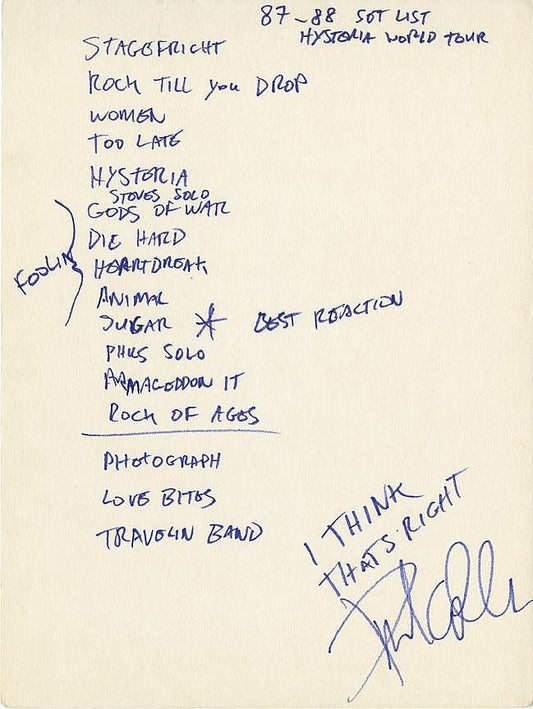 87-88 SET LIST
HYSTERIA WORLD TOUR
STAGEFRIGHT
ROCK TILL you DROP
WOMEN
TOO LATE
HYSTERIA
STEVES SOLO
GODS OF WAR
DIE HARD
HEARTBREAK
FOOLIN
ANIMAL
SUGAR * BEST REACTION
PHILS SOLO
ARMAGEDDON IT
ROCK OF AGES
PHOTOGRAPH
LOVE BITES
TRAVELIN BAND
I THINK
THATS RIGHT